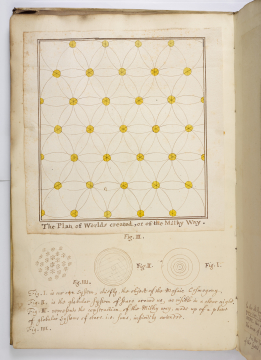 The Plan of Worlds created, or of the Milky Way.
Fig. III.
Fig: II.
Fig: I.
Fig. I. is our System, chiefly the object of the Mosaic Cosmogony.
Fig. II. is the globular System of Stars around us, as visible in a clear night.
Fig. III. represents the construction of the Milky way, made up of a plane
of globular Systems of stars i.e. suns, infinitely extended.
Fig. IIII.